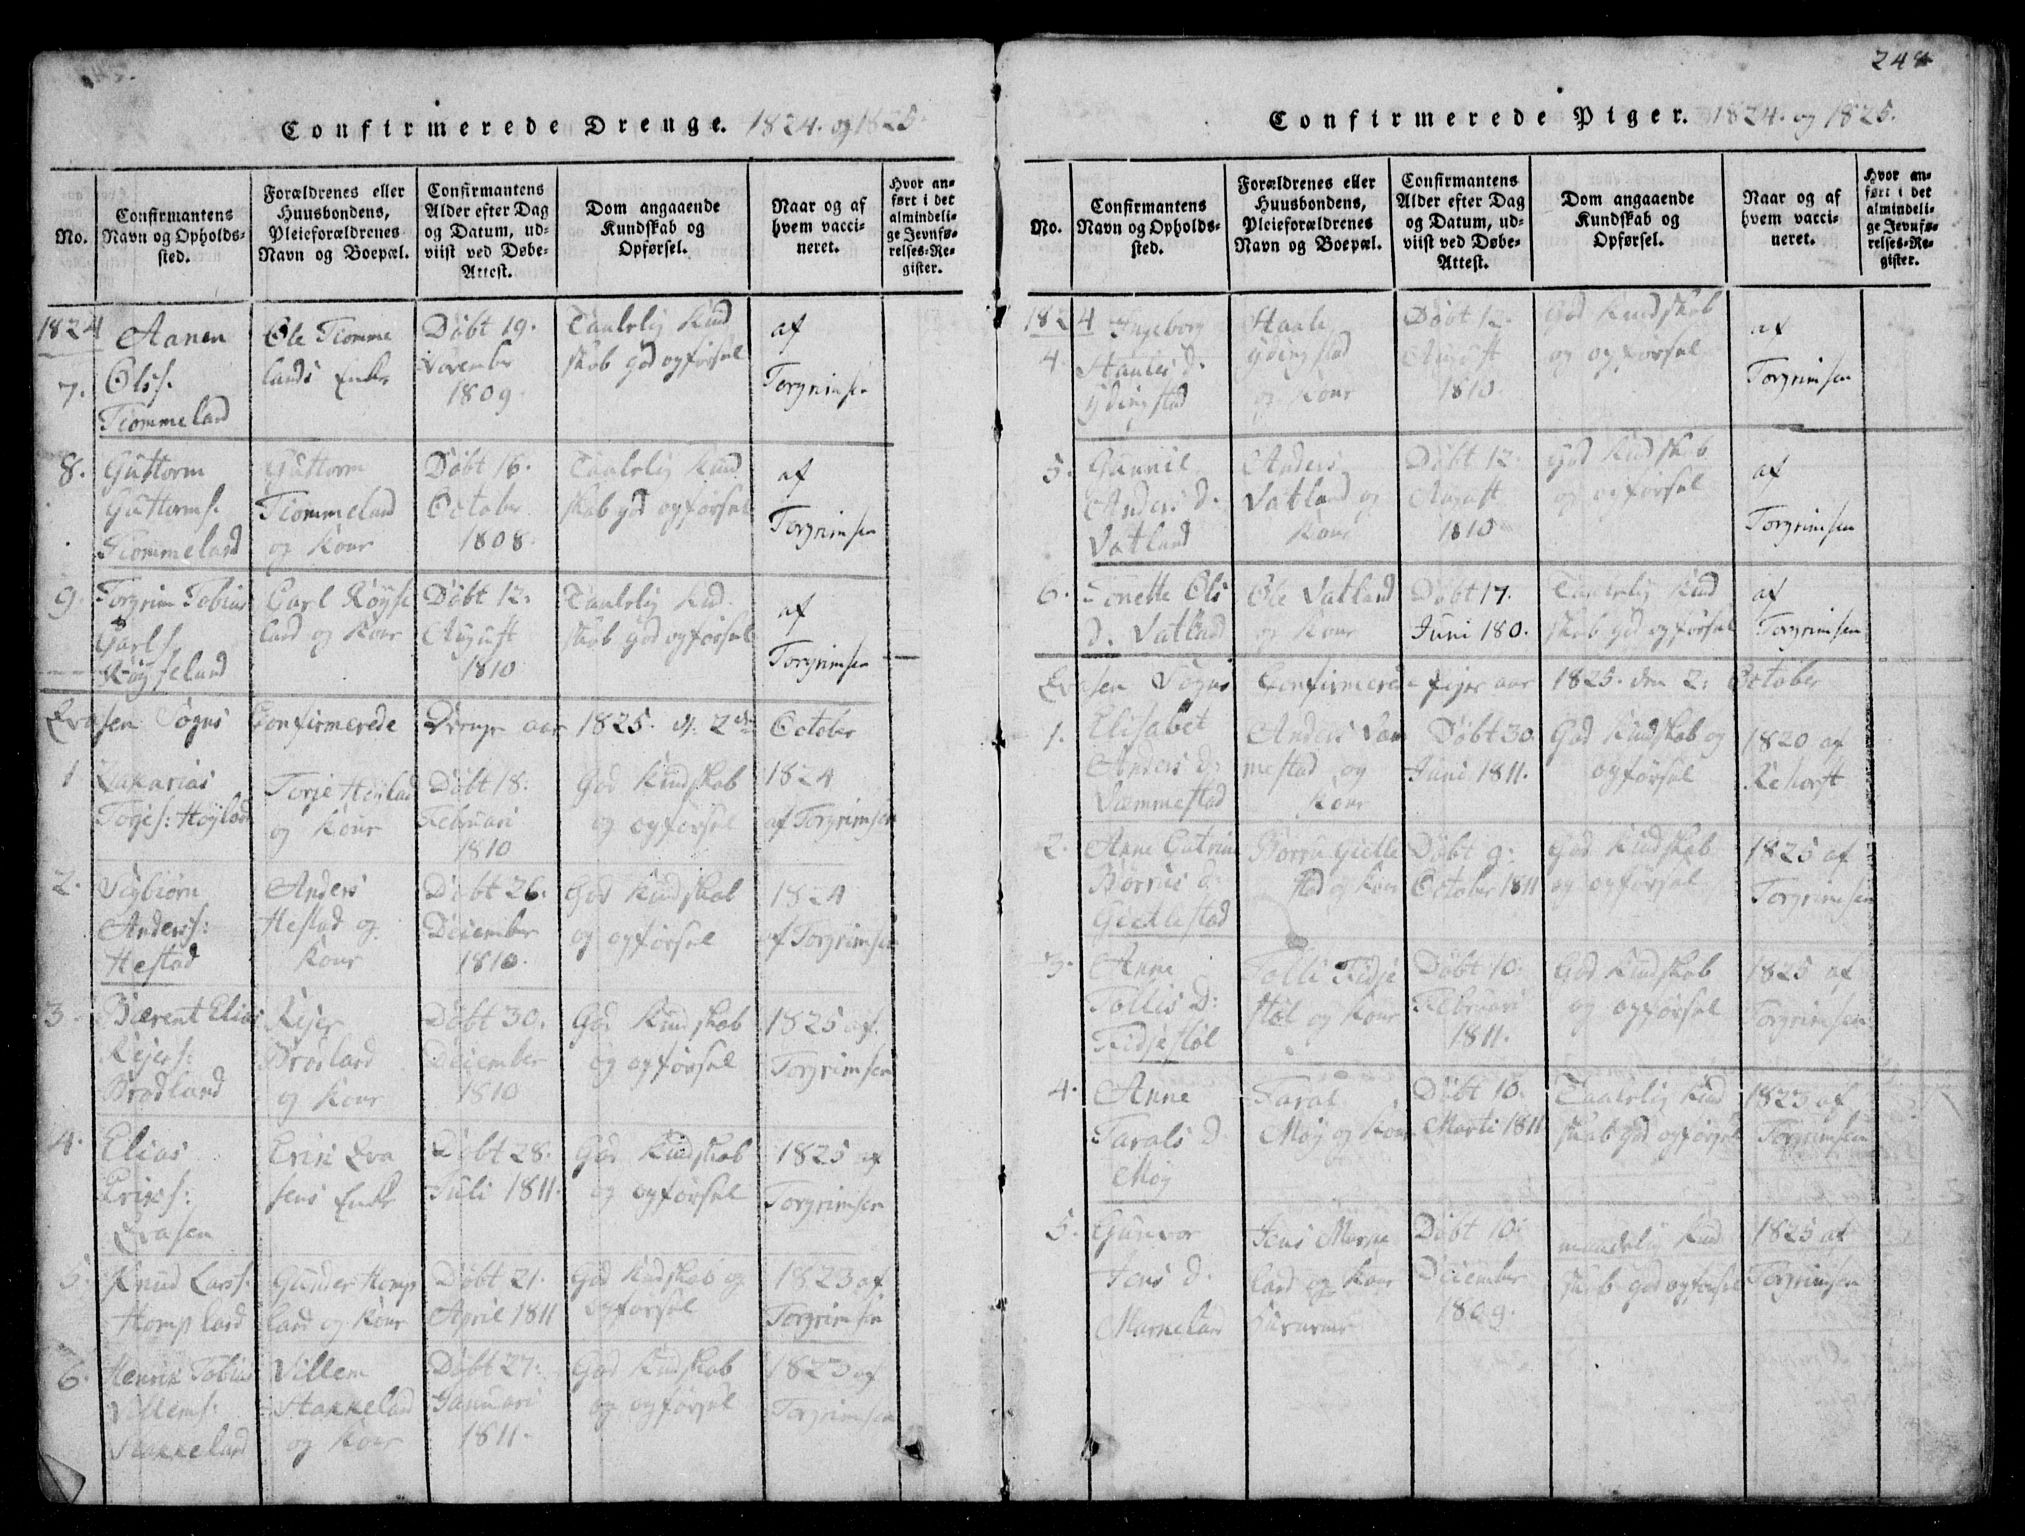 248
Confirmerede Drenge. 1824. og 1825.
No.
Confirmantens
Navn og Opholds-
sted.
Forældrenes eller
Huusbondens,
Pleieforældrenes
Navn og Boepæl.
Confirmantens
Alder efter Dag
og Datum, ud-
viist ved Døbe-
Attest.
Dom angaaende
Kundskab og
Opførsel.
Naar og af
hvem vacci-
neret.
Hvor an-
ført i det
almindeli-
ge Jevnfø-
relses-Re-
gister.
1824
7.
Aanen
Ols.
Tiommeland
Ole Tiomme
lands Enke
Døbt 19.
November
1809.
Taalelig Kund
skab god opførsel
af
Torgrimsen
8.
Guttorm
Guttorms.
Tiommeland
Guttorm
Tiommeland
og Kone
Døbt 16.
October
1808.
Taalelig Kund
skab god opførsel
af
Torgrimsen
9.
Torgrim Tobias
Carls.
Røyseland
Carl Røyse
land og Kone
Døbt 12.
August
1810
Taalelig Kud
skab god opførsel
af
Torgrimsen
Evasen Sogns Confirmerede Drenge aar 1825. d. 2den October
1
Zakarias
Tores: Høyland
Torje Høiland
og Kone
Døbt 18.
Februari
1810
God Kundskab
og opførsel
1824
af Torgrimsen
2.
Sigbiørn
Anders:
Hestad
Anders
Hestad og
Kone
Døbt 26.
December
1810.
God Kundskab
og opførsel
1824
af Torgrimsen
3.
Bærent Elias
Rejers:
Brødland
Rejer
Brødland
og Kone
Døbt 30.
December
1810
God Kundskab
og opførsel
1825 af
Torgrimsen
4.
Elias
Eriks:
Evasen
Erik Eva
sens Enke
Døbt 28.
Juli 1811.
God Kundskab
og opførsel
1825 af
Torgrimsen
5.
Knud Lars:
Homp land
Gunder Homp
land og Kone
Døbt 21.
April 1811
God Kudskab og
opførsel
1823 af
Torgrimsen
6.
Henrik Tobias
Villems:
Stakkeland
Villem
Stakkeland
og Kone
Døbt 27.
Januari
1811.
God Kudskab
og opførsel
1823 af
Torgrimsen
Confirmerede Piger. 1824. og 1825.
No.
Confirmantens
Navn og Opholds-
sted.
Forældrenes eller
Huusbondens,
Pleieforældrenes
Navn og Boepæl.
Confirmantens
Alder efter Dag
og Datum, ud-
viist ved Døbe-
Attest.
Dom angaaende
Kundskab og
Opførsel.
Naar og af
hvem vacci-
neret.
Hvor an-
ført i det
almindeli-
ge Jevnfø-
relses-Re-
gister.
1824
4.
Ingeborg
Staales d.
Ydingstad
Staale
Ydingstad
og Kone
Døbt 12.
August
1810.
God Kundskab
og opførsel
af
Torgrimsen
5.
Gunnil
Anders d.
Vatland
Anders
Vatland og
Kone
Døbt 12.
August
1810
God Kudskab
og opførsel
af
Torgrimsen
6.
Tonette Ols
d. Vatland
Ole Vatland
og Kone
Døbt 17.
Juni 180.
Taalelig Kud
skab god opførsel
af
Torgrimsen
Evasen Sogns Confirmerede piger aar 1825. den 2. October
1.
Elisabet
Anders d:
Væmmestad
Anders Væm
mestad og
Kone
Døbt 30.
Juni 1811.
God Kudskab og
opførsel
1820 af
Rehorst
2.
Anne Catrine
Børrus d:
Gidlestad
Døbt 9.
October 1811
God Kudskab
og opførsel
1825 af
Torgrimsen
3.
Anne
Tollis D:
Fidjestøl
Tolli Fidje
støl og Kone
Døbt 10.
Februari
1811.
God Kudskab
og opførsel
1825 af
Torgrimsen
4.
Anne
Tarals d.
Møy
Taral
Møy og Kone
Døbt 10.
Marti 1811
Taalelig Kud
skab god opførsel
1823 af
Torgrimsen
5.
Gunvor
Jens d.
Jens
land og Kone
Døbt 10.
December
1809.
maadelig Kud
skab god opførsel
1825 af
Torgrimsen